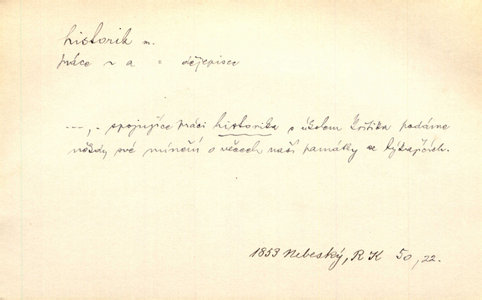 historik m.
práce ~ a = dějepisce
---, - spojujíce práci historika s úkolem kritika podáme
někdy své mínění o věcech naší památky se týkajících.
1853 Nebeský, RK 50, 22.